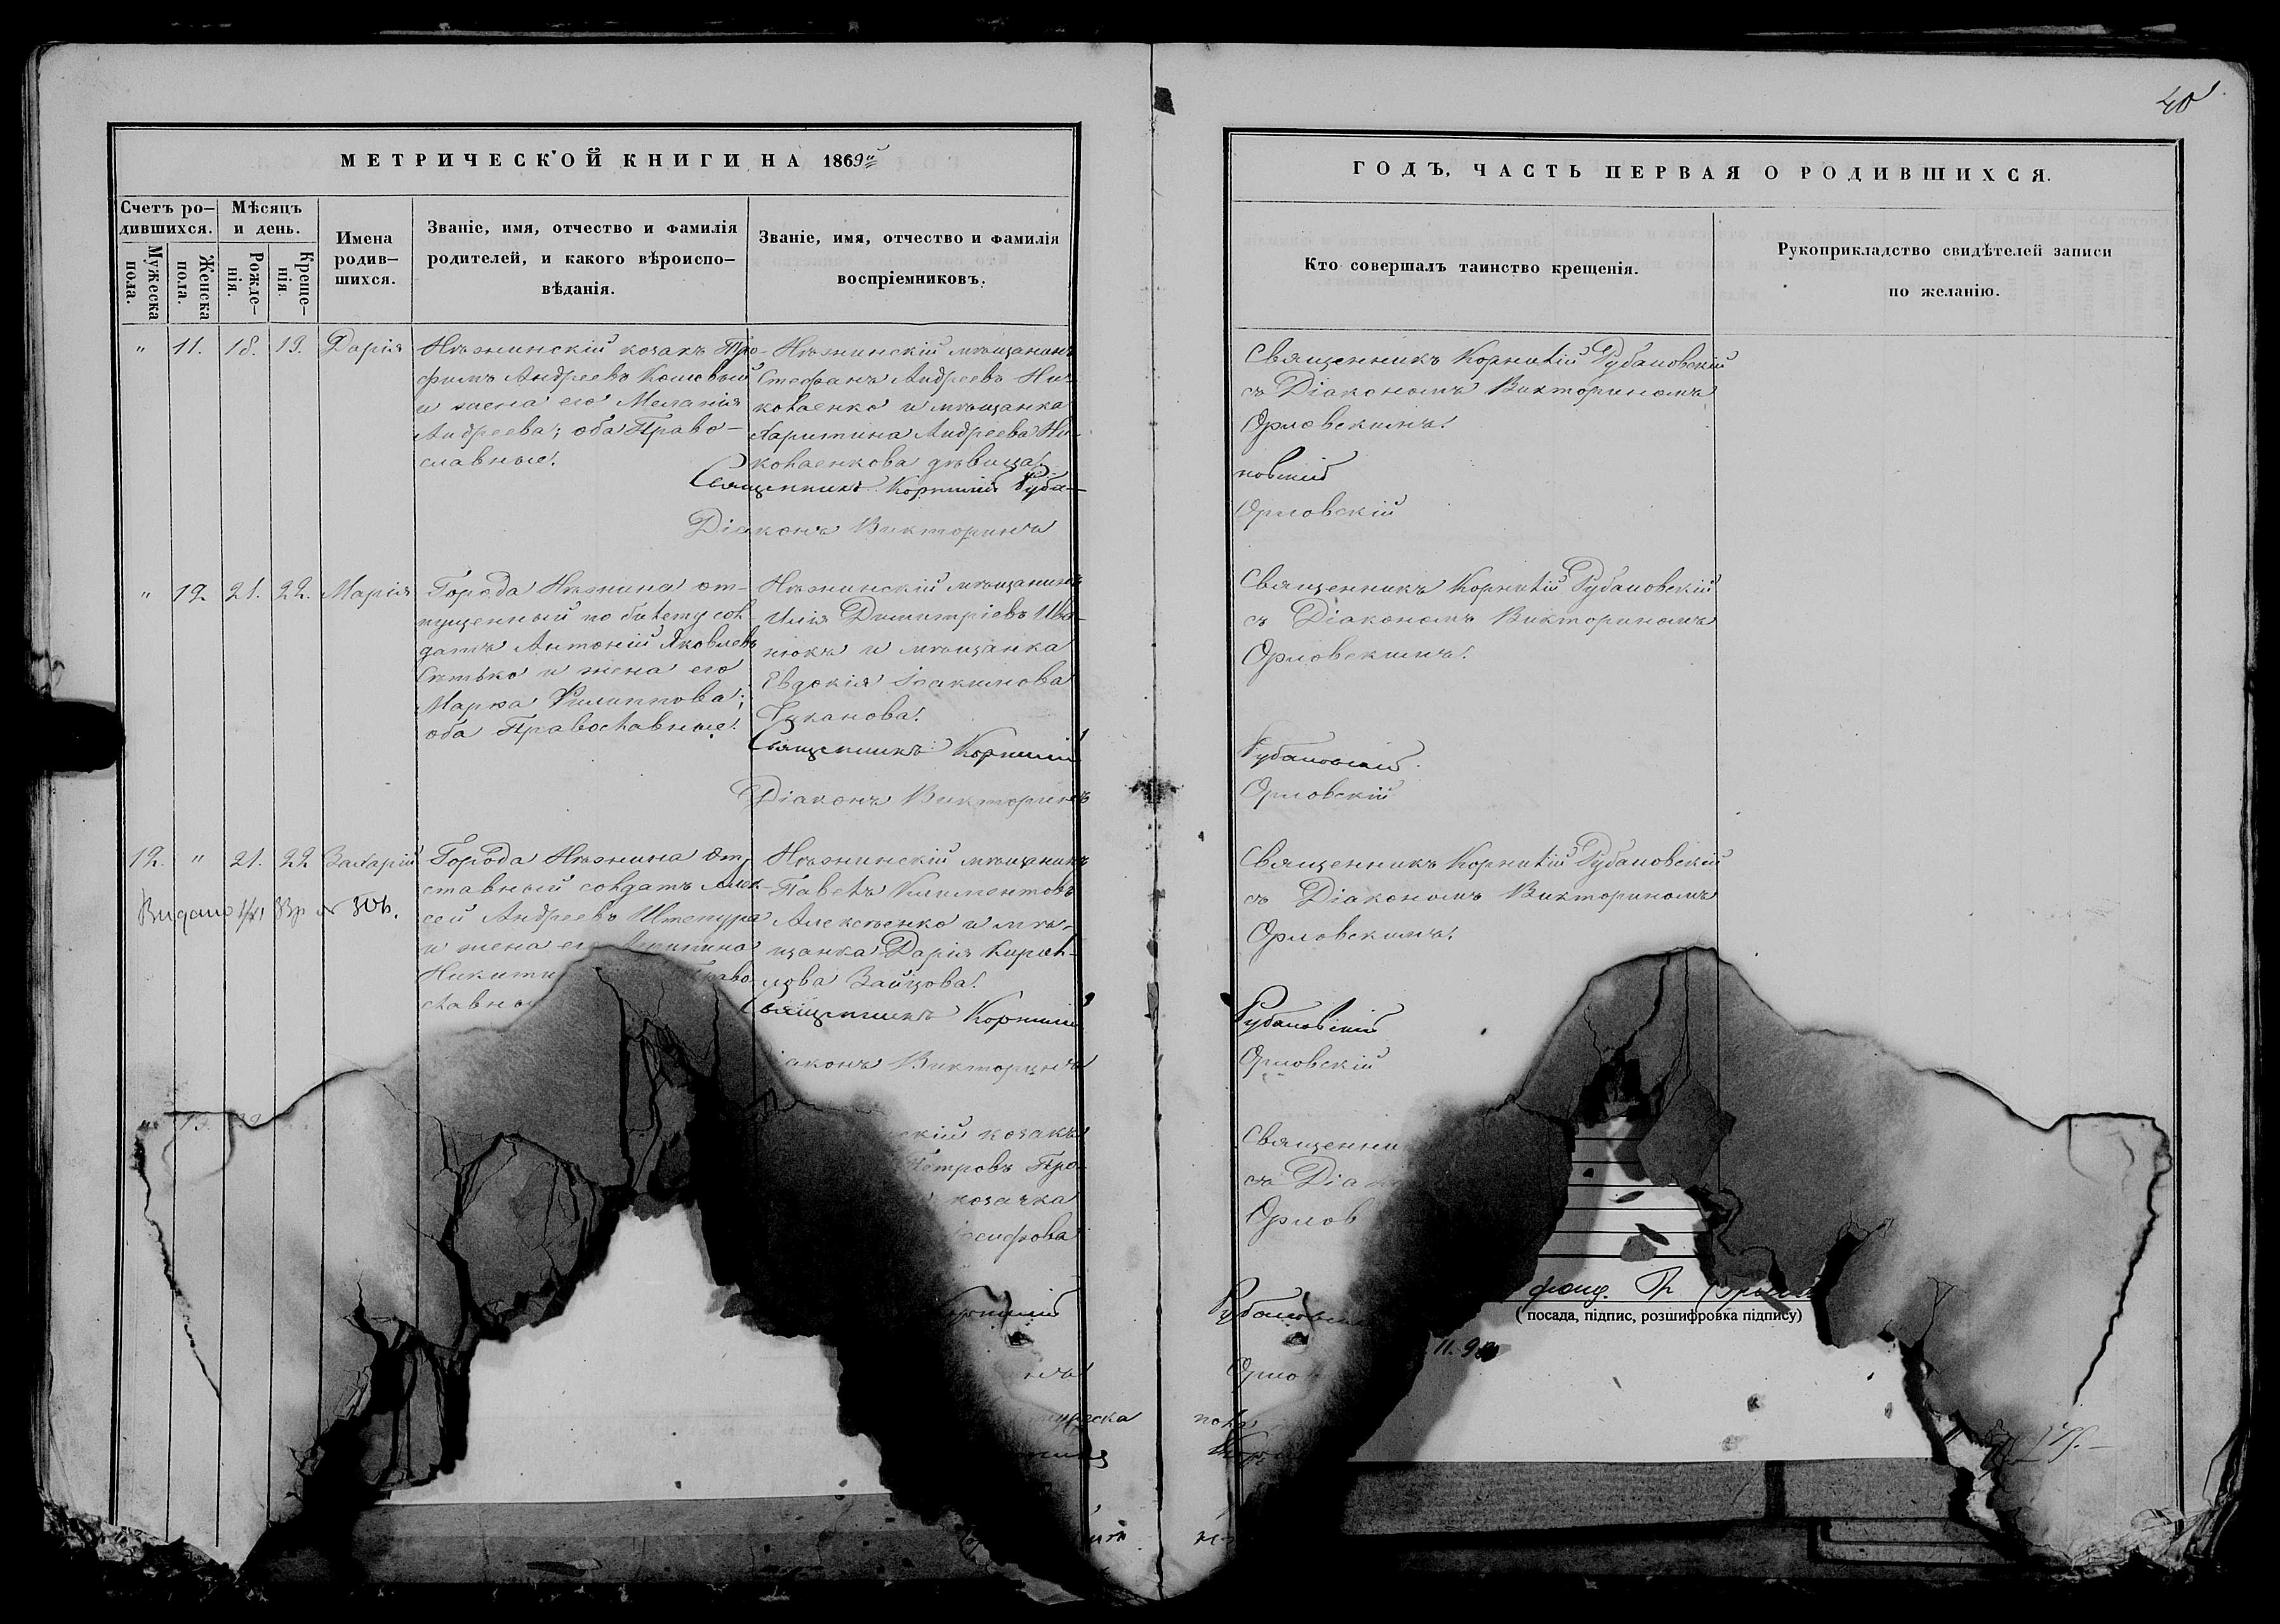 40
МЕТРИЧЕСКОЙ КНИГИ НА 1869й
Счетъ ро-
дившихся.
Мужеска
пола.
Женска
пола.
Мѣсяцъ
и день.
Рожде-
нія.
Креще-
нія.
Имена
родив-
шихся.
Званіе, имя, отчество и фамилія
родителей, и какого вѣроиспо-
вѣданія.
Званіе, имя, отчество и фамилія
воспріемниковъ.
" 11. 18. 19. Дарія
Нѣжинскій козакъ Тро-
фимъ Андреевъ Кошовый
и жена его Меланія
Андреева; оба Право-
славные.
Нѣжинскій мѣщанинъ
Стефанъ Андреевъ Ни-
колаенко и мѣщанка
Харитина Андреева Ни-
колаенкова дѣвица.
Священникъ Корнилій Руба-
Діаконъ Викторинъ
" 12 21. 22. Марія
Города Нѣжина от-
пущенный по билету сол-
датъ Антоній Яковлевъ
и жена его
Марѳа Филиппова;
оба Православные.
Нѣжинскій мѣщанинъ
Илія Димитріевъ Ива-
нюкъ и мѣщанка
Евдокія Іоакимова
Священникъ Корнилій
Діаконъ Викторинъ
12. " 21. 22 Захарій
Видано
Города Нѣжина от-
ставный солдатъ Алек-
сей Андреевъ Штепура
и жена его
Никити Право
славны
Нѣжинскій мѣщанинъ
Павелъ Климентовъ
Алексѣенко и мѣ-
щанка Дарія Кирил-
лова Зайцова.
Священникъ Корнилій
іаконъ Викторинъ
" 13.
скій козакъ
Петровъ Про-
козачка
осифова
Корнилій
инъ
ГОДЪ, ЧАСТЬ ПЕРВАЯ О РОДИВШИХСЯ.
Кто совершалъ таинство крещенія.
Рукоприкладство свидѣтелей записи
по желанію.
Священникъ Корнилій Рубановскій
съ Діакономъ Викториномъ
Орловскимъ.
новскій
Орловскій
Священникъ Корнилій Рубановскій
съ Діакономъ Викториномъ
Орловскимъ.
Рубановскій
Орловскій
Священникъ Корнилій Рубановскій
съ Діакономъ Викториномъ
Орловскимъ.
Рубановскій
Орловскій
Священни
съ Діак
Орлов
Рубановскі
Орло
(посада, підпис, розшифровка підпису)